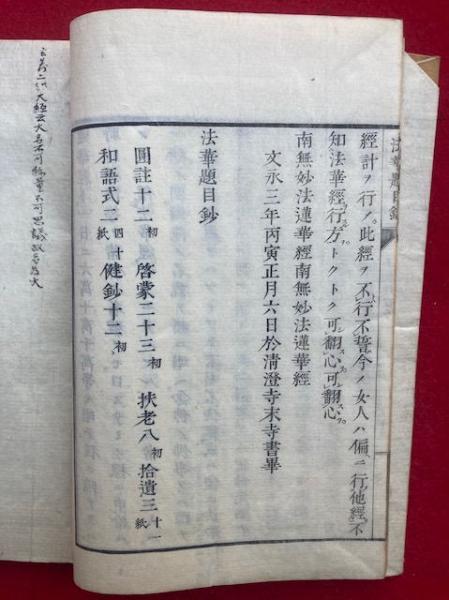 經計ヲ行ノ。此經ヲ不行不誓今ノ女人ハ偏ニ行他經不
知法華經行方トクトク可翻心可翻心
南無妙法蓮華經南無妙法蓮華經
文永三年丙寅正月六日於淸澄寺末寺書畢
法華題目鈔
圓註十二初 啓蒙二十三初 扶老八初 拾遺三十一紙
和語式二四十紙 健鈔十二初
法華題目鈔
玄義二云大經云大名不可稱量不可思議故名爲大